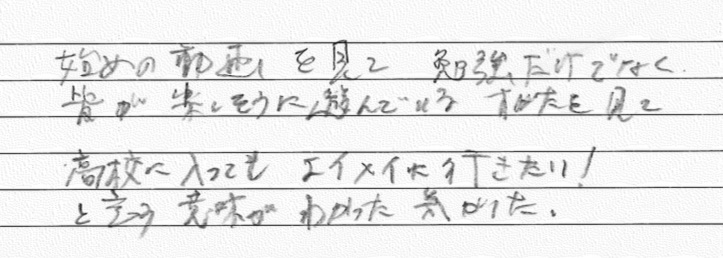 始めの動画を見て 勉強だけでなく
皆が楽しそうに遊んでいる すがたを見て
高校に入っても エイメイに行きたい!
と言う意味が わかった 気がした。